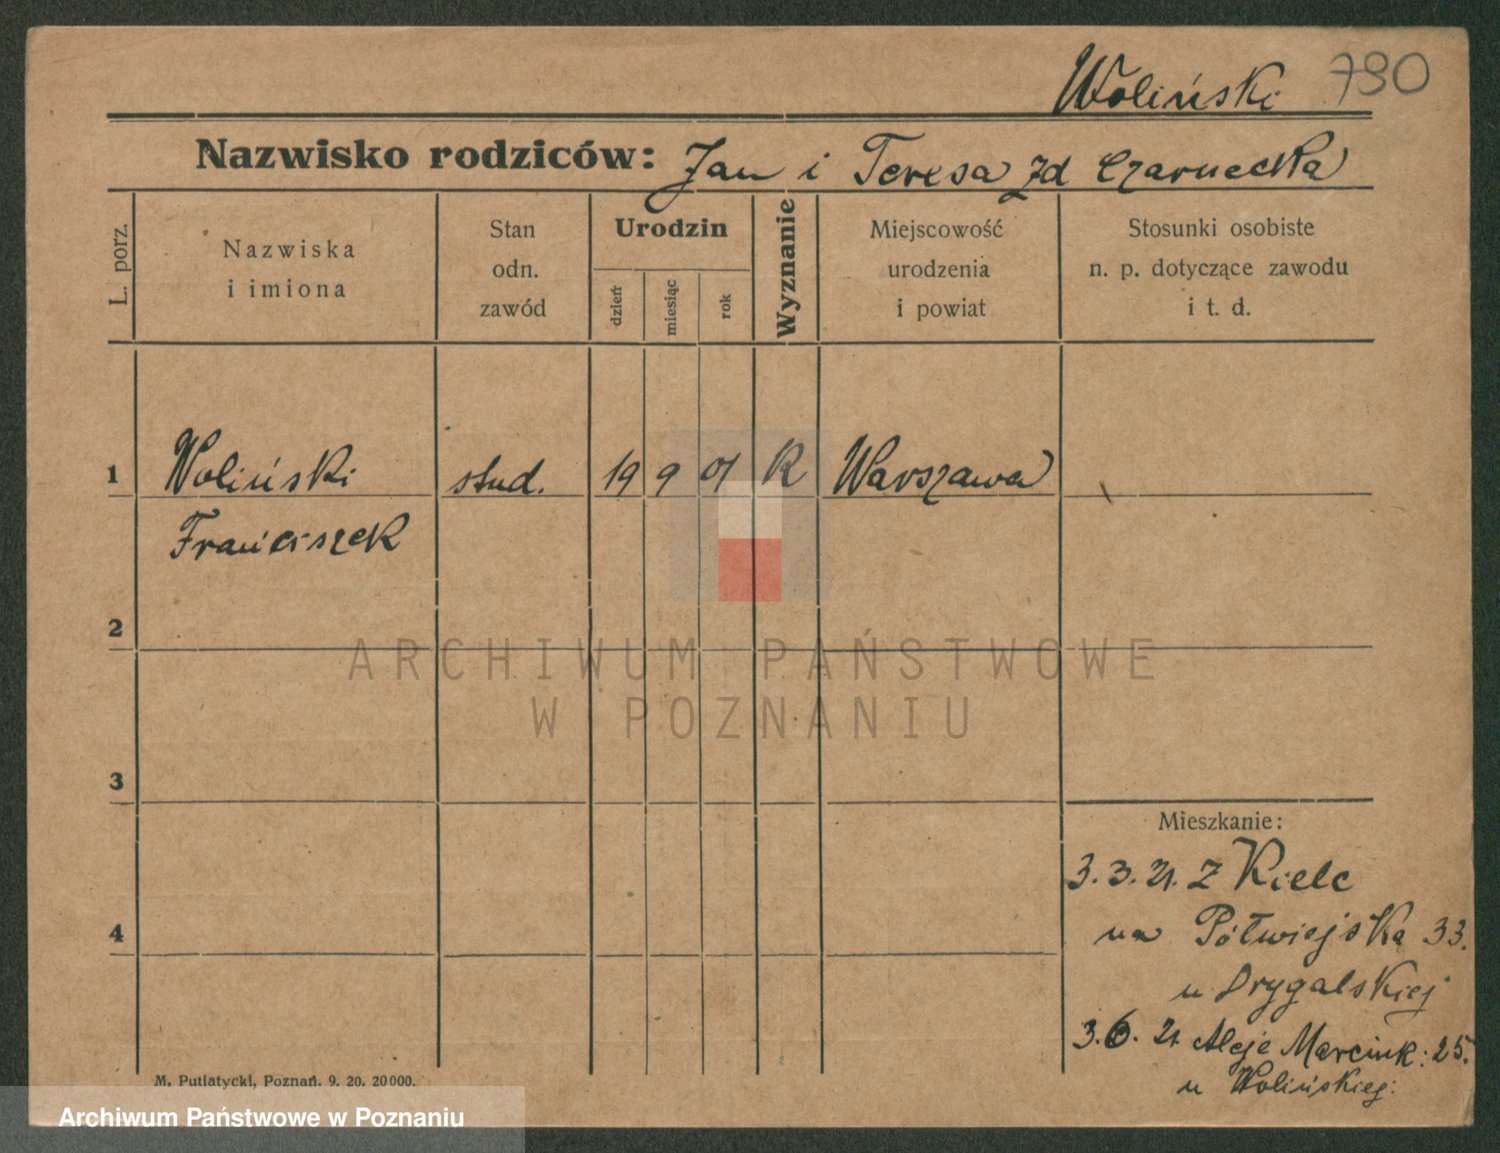 Woliński 790
Nazwisko rodziców: Jan i Teresa zd Czarnecka
L. porz.
Nazwiska
i imiona
Stan
odn.
zawód
Urodzin
dzień
miesiąc
rok
Wyznanie
Miejscowość
urodzenia
i powiat
Stosunki osobiste
n. p. dotyczące zawodu
i t. d.
1 Woliński stud. 19 9 01 R Warszawa
Franciszek
2
3
4
Mieszkanie:
3.3.21. z Kielc
na Półwiejska 33.
u Drygalskiej
3.6.21 Aleje Marcink: 25.
u Wolińskiej:
M. Putiatycki, Poznań. 9. 20. 20000.
ARCHIWUM PAŃSTWOWE
W POZNANIU
Archiwum Państwowe w Poznaniu